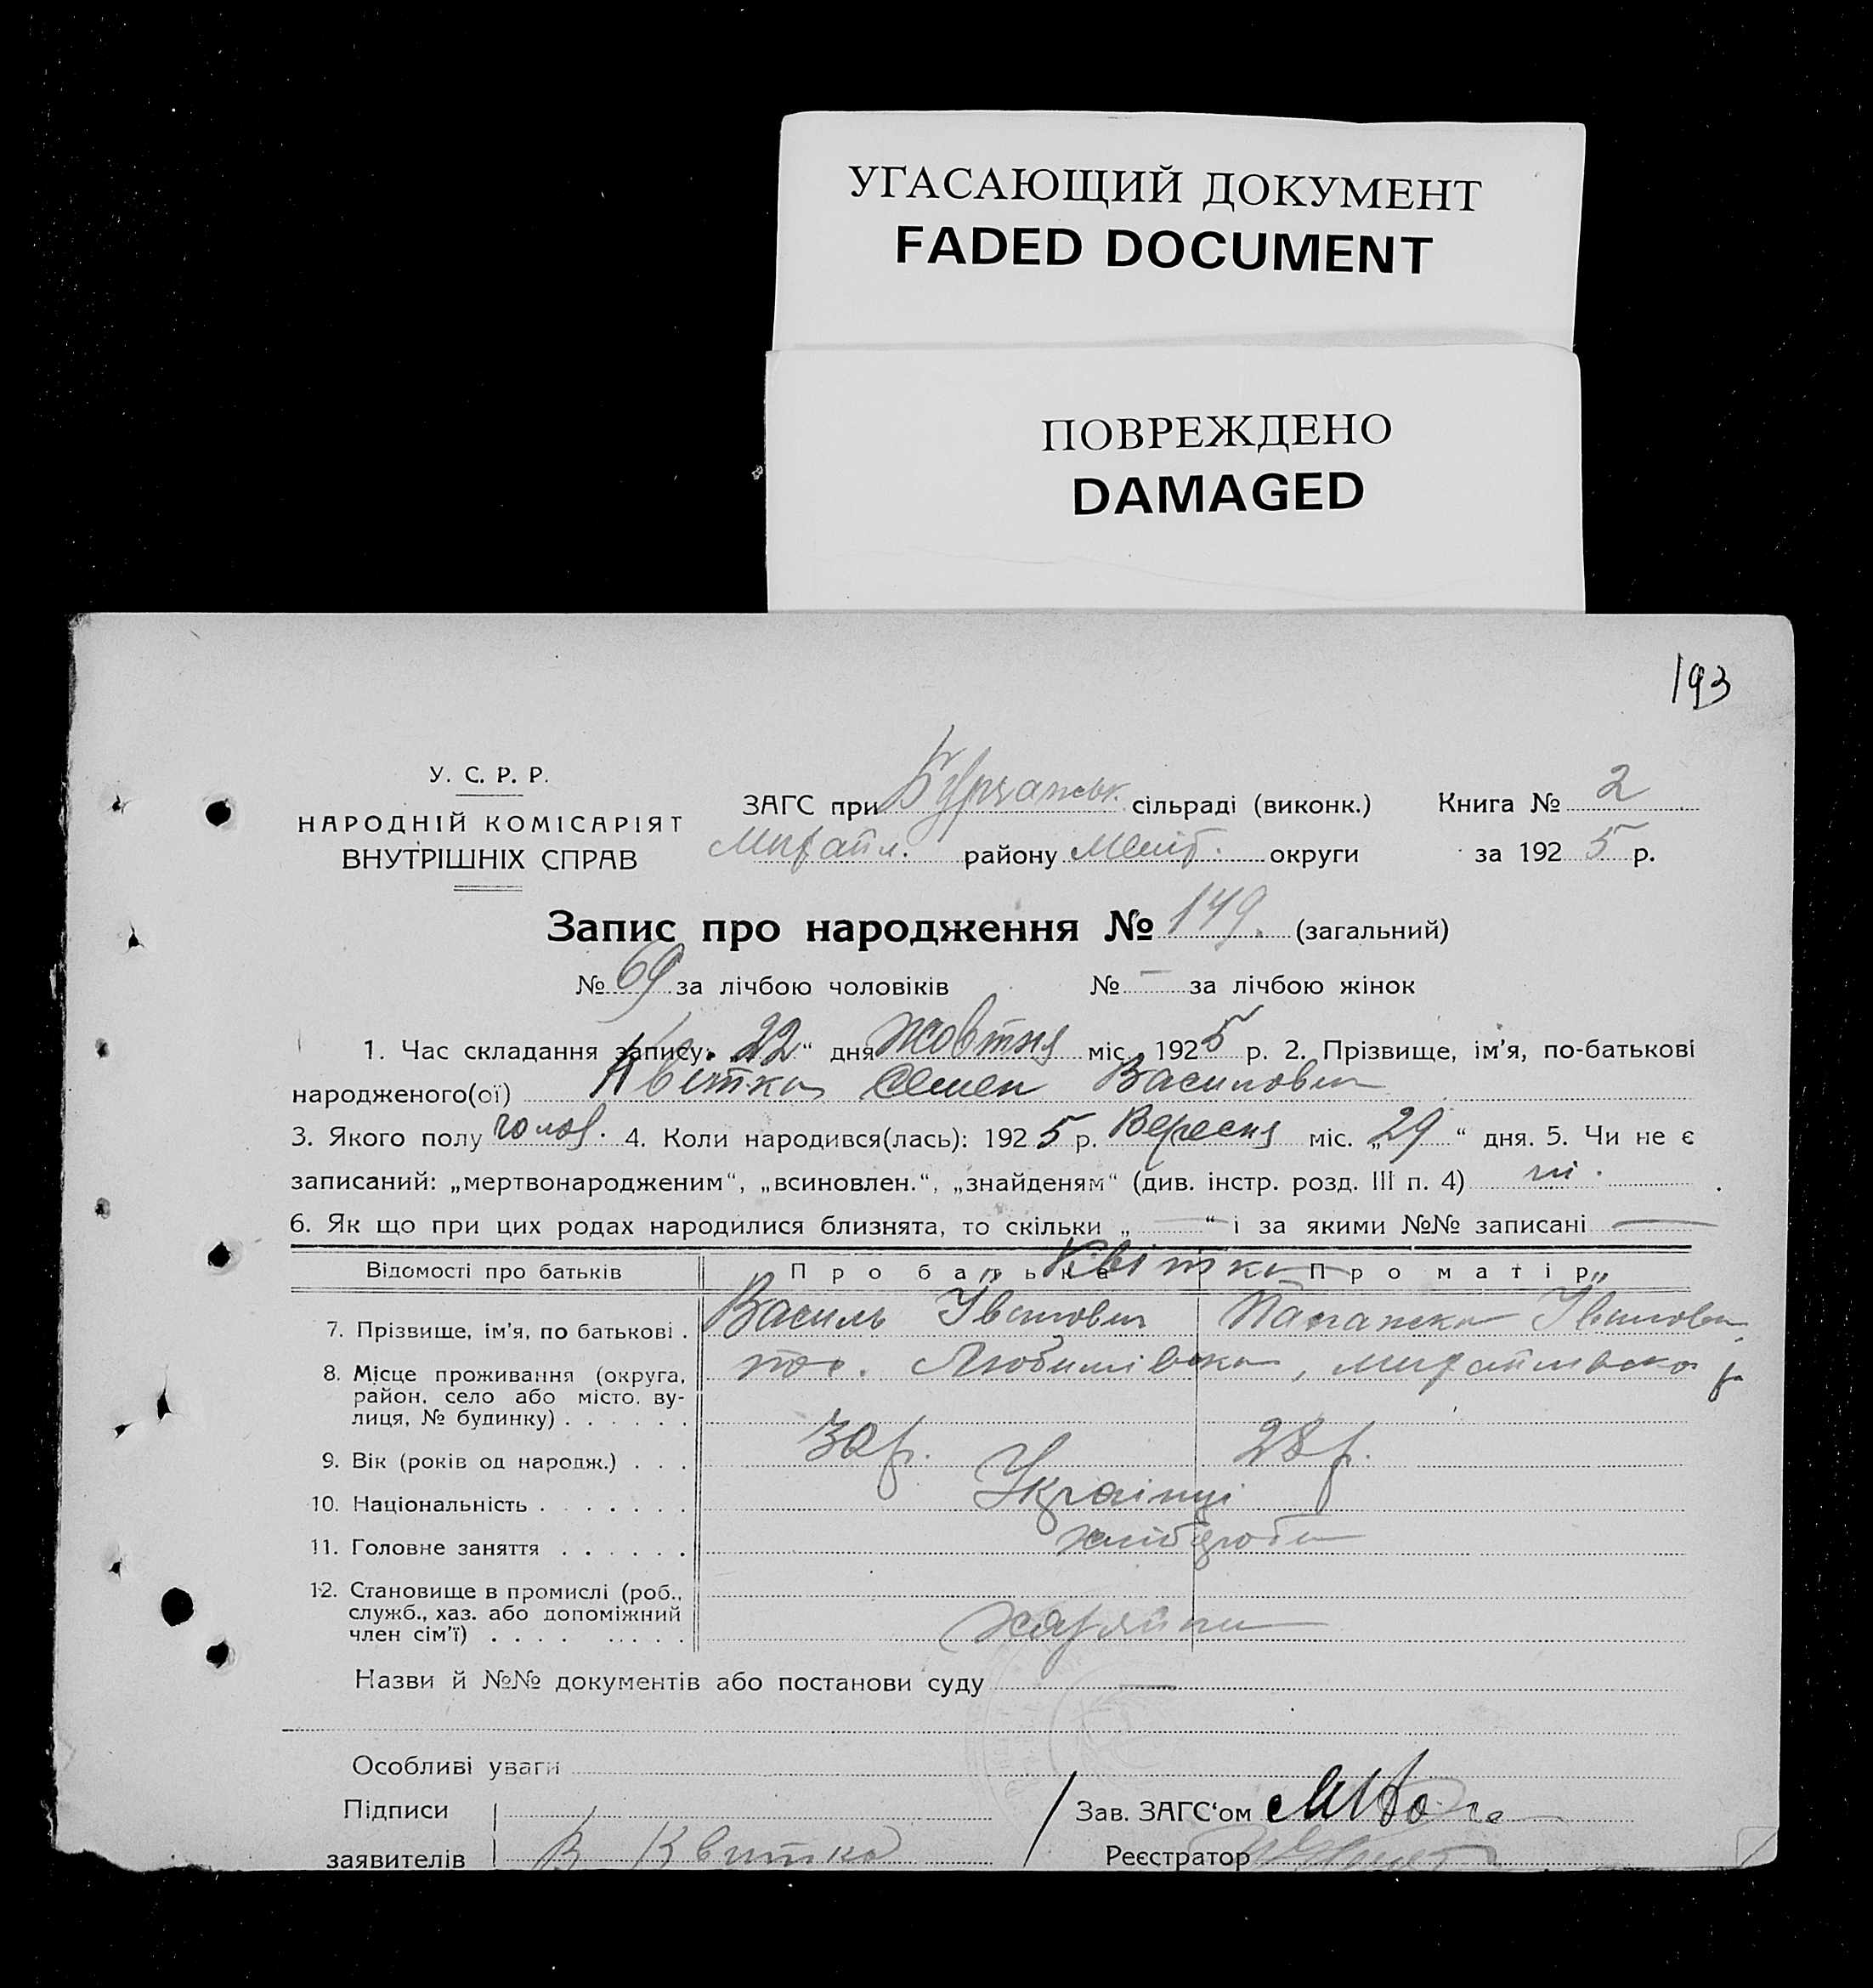 УГАСАЮЩИЙ ДОКУМЕНТ
FADED DOCUMENT
ПОВРЕЖДЕНО
DAMAGED
193
У. С. Р. Р.
НАРОДНІЙ КОМІСАРІЯТ
ВНУТРІШНІХ СПРАВ
ЗАГС при сільраді (виконк.) Книга № 2
Михайл. району Меліт. округи за 1925 р.
Запис про народження № 149. (загальний)
№ 69 за лічбою чоловіків № — за лічбою жінок
1. Час складання запису: 22“ дня Жовтня міс. 1925 р. 2. Прізвище, ім’я, по-батькові
народженого(ої) Квітка Семен Василович
3. Якого полу чолов. 4. Коли народився(лась): 1925 р. Вересня міс. „29“ дня. 5. Чи не є
записаний: „мертвонародженим“, „всиновлен.“, „знайденям“ (див. інстр. розд. III п. 4) ні.
6. Як що при цих родах народилися близнята, то скільки „—“ і за якими №№ записані —
Відомості про батьків Про батька Квітка Про матір
7. Прізвище, ім’я, по батькові . Василь Іванович Іванова
8. Місце проживання (округа, пос. Любимівка, Михайлівско р
район, село або місто, ву-
лиця, № будинку) . . . . . .
9. Вік (років од народж.) . . . 30 р. 28 р.
10. Національність . . . . . . . Українці
11. Головне заняття . . . . . . хлібороби
12. Становище в промислі (роб.,
служб., хаз. або допоміжний
член сім’ї) . . . . . . . . . хазяїни
Назви й №№ документів або постанови суду —
Особливі уваги
Підписи Зав. ЗАГС‘ом
заявителів В Квитка Реєстратор